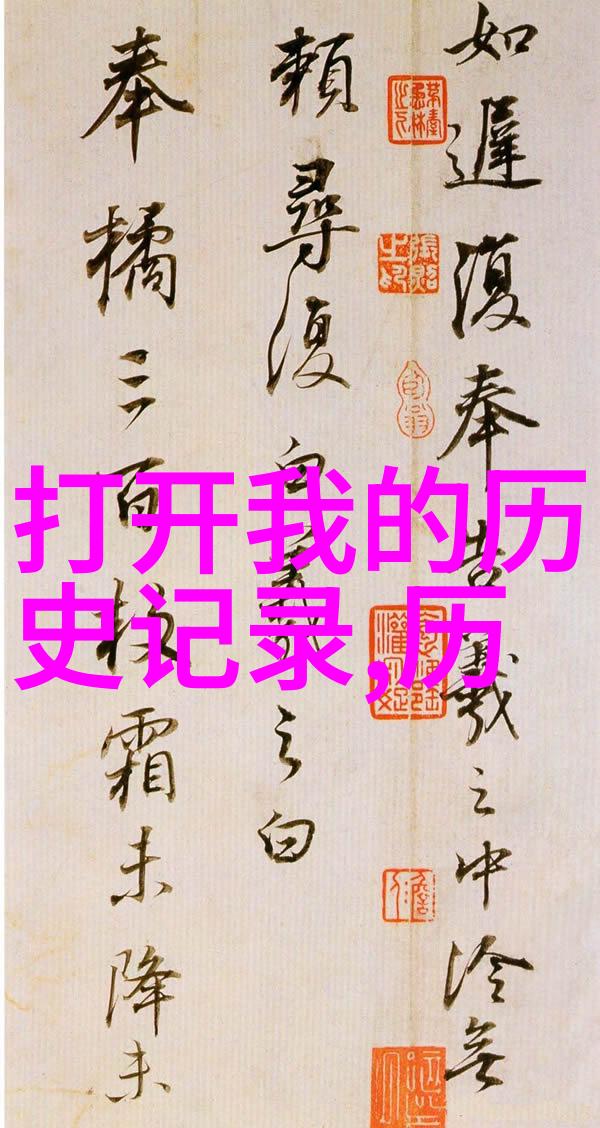 打开我的历
史记录,历
如遲復奉告羲之中冷無
賴尋復白羲之白
奉橘三百枚霜未降未